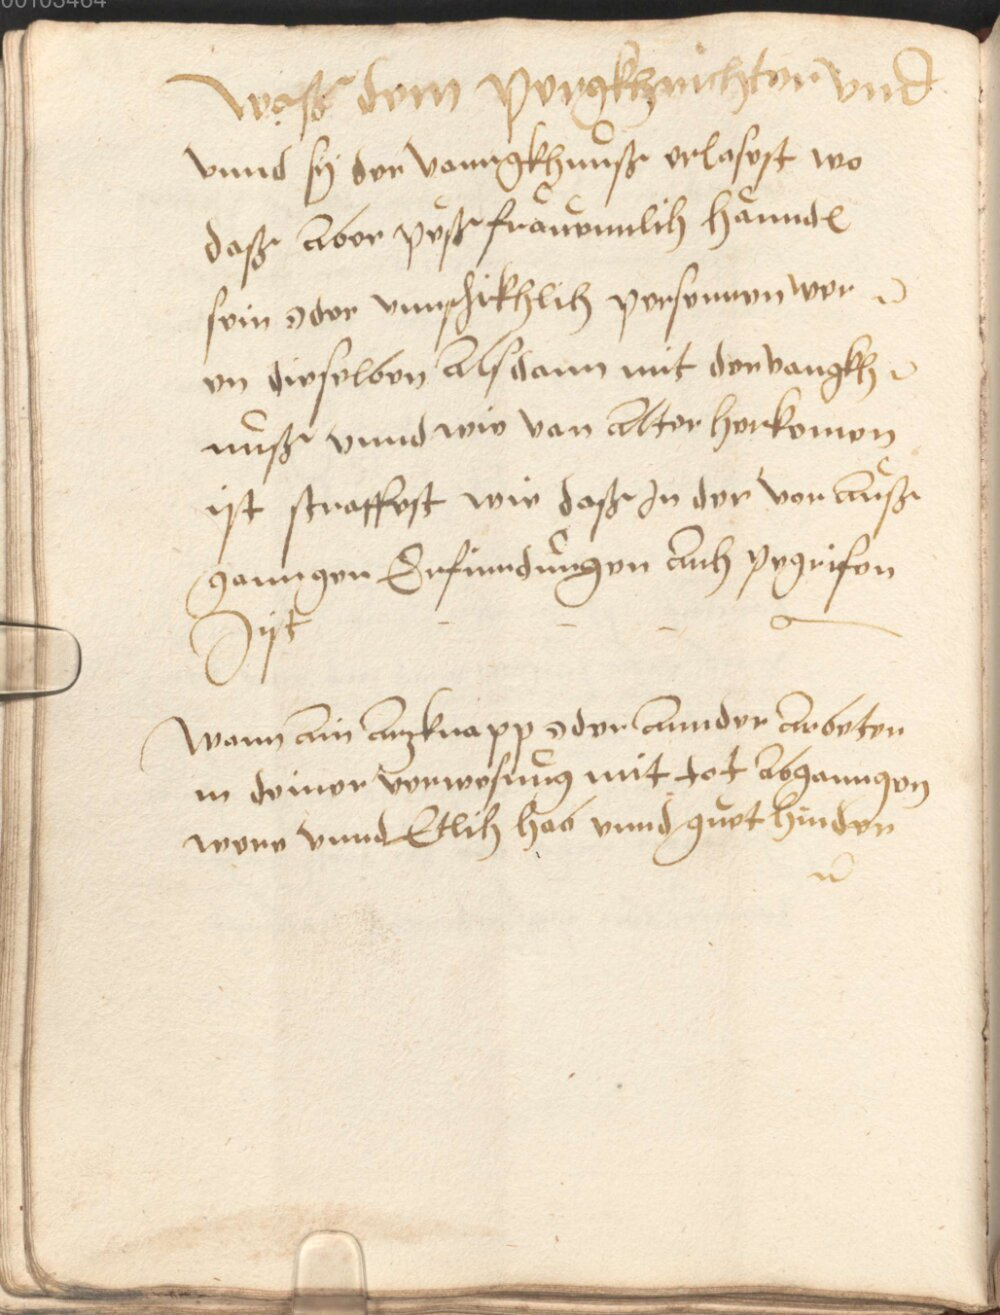 00103464
Waß dem Pergkhrichter vnd
vnnd sÿ der vanngkhnuß erlasest wo
daß aber peße fräuennlich hänndl
sein oder vnnschikhlich personnen wer
en dieselben Alsdann mit der vangkh
nuß vnnd wie van Alter herkomen
ist straffest wie daß In der vor auß
ganngen Erfinndungen auch pegrifen
Ist
Wann ain arzknapp oder annder arbeter
in deiner verwesung mit tot abganngen
were vnnd Etlich hab vnnd guet hinder